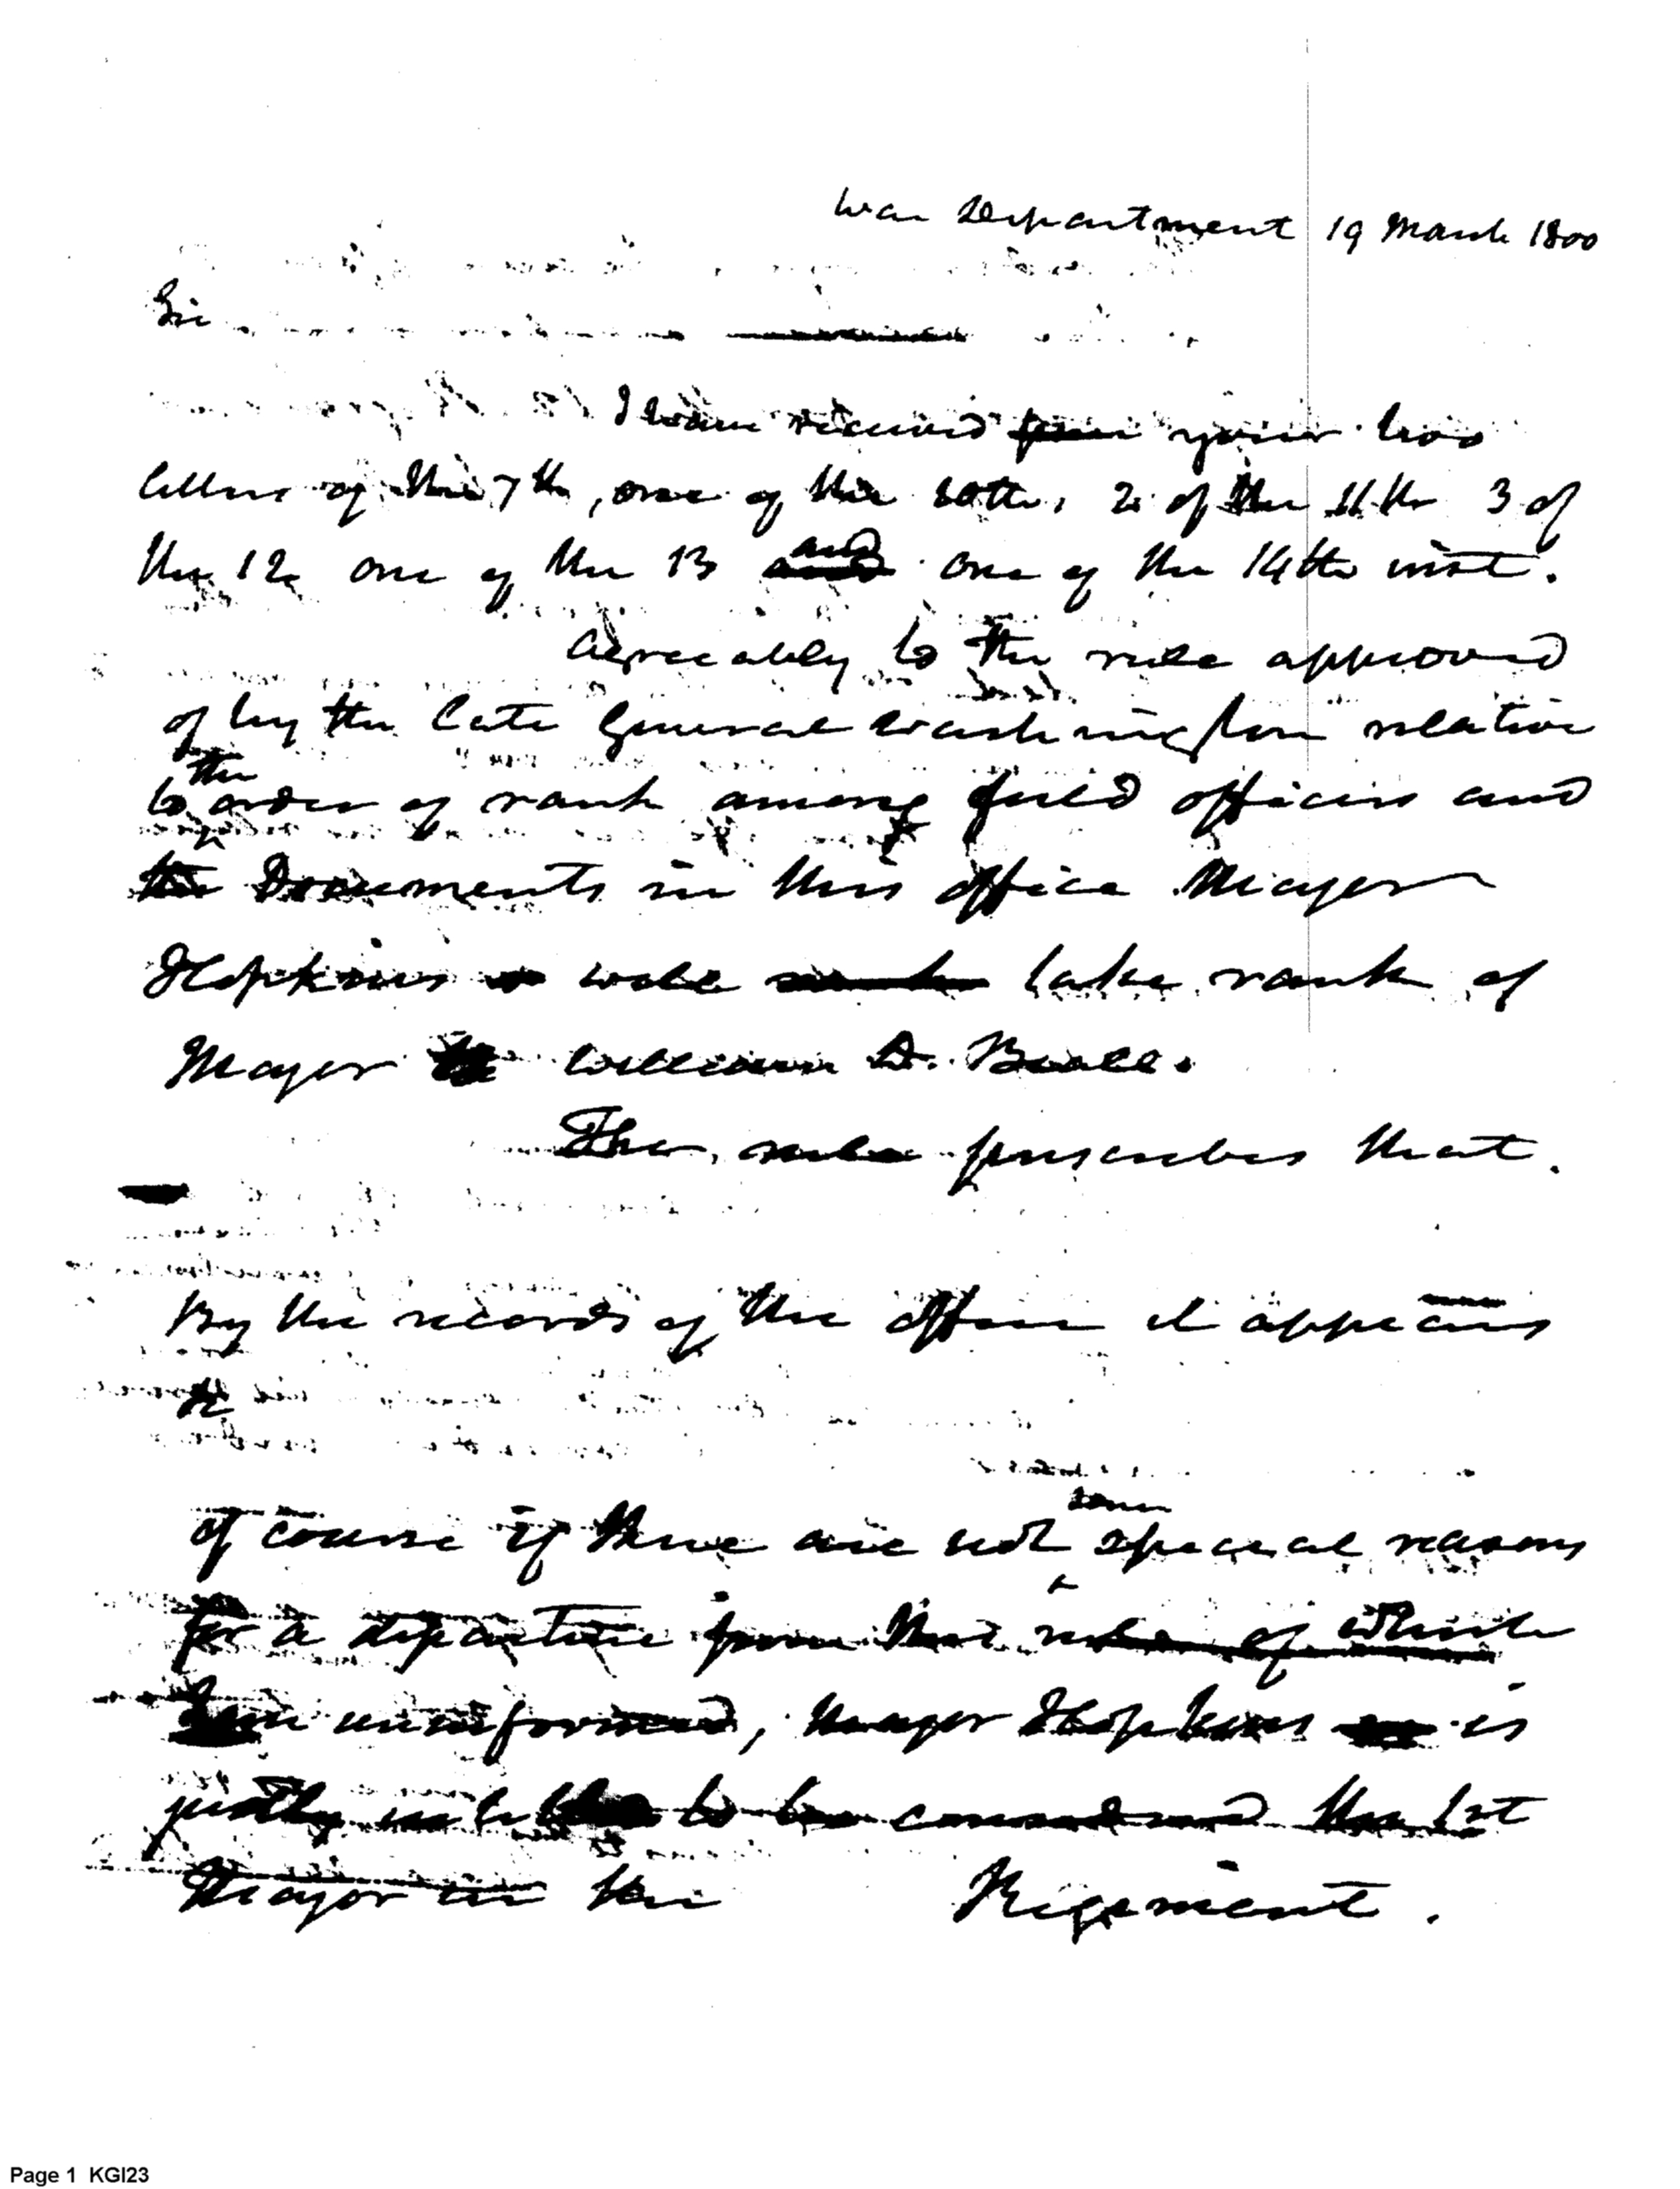 War Department 19 March 1800
Sir
I have received your two
letters of the 7th, one of the 10th, 2 of the 11th 3 of
the 12 one of the 13 and one of the 14th inst.
Agreeably to the rule approved
of by the late General Washington relative
the
to order of rank among field officers and
the Documents in this office Major
Hopkins will take rank of
Major William D. Beall.
The rule prescribes that.
By the records of the office it appears
some
of course if there are not special reasons
for a departure from that rule of which
I am uninformed, Major Hopkins is
justly to be considered the 1st
Major in the Regiment.
Page 1 KGI23